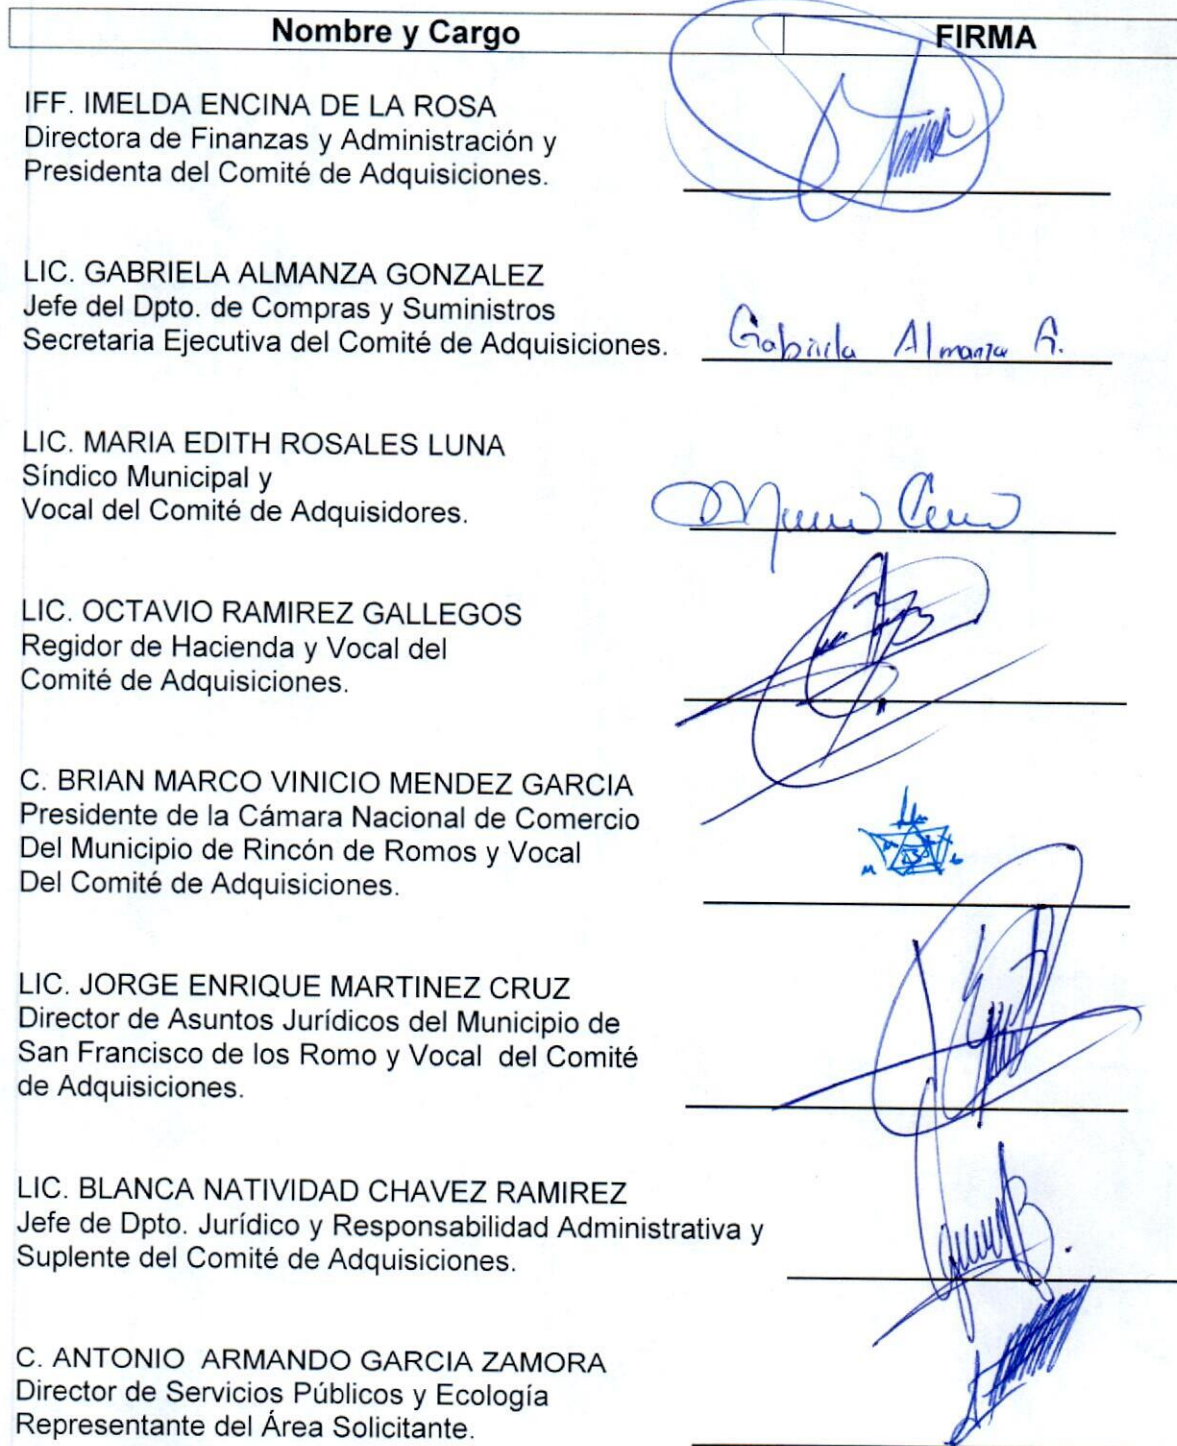 Nombre y Cargo FIRMA
IFF. IMELDA ENCINA DE LA ROSA
Directora de Finanzas y Administración y
Presidenta del Comité de Adquisiciones.
LIC. GABRIELA ALMANZA GONZALEZ
Jefe del Dpto. de Compras y Suministros
Secretaria Ejecutiva del Comité de Adquisiciones. Gabriela Almanza G.
LIC. MARIA EDITH ROSALES LUNA
Síndico Municipal y
Vocal del Comité de Adquisidores.
LIC. OCTAVIO RAMIREZ GALLEGOS
Regidor de Hacienda y Vocal del
Comité de Adquisiciones.
C. BRIAN MARCO VINICIO MENDEZ GARCIA
Presidente de la Cámara Nacional de Comercio
Del Municipio de Rincón de Romos y Vocal
Del Comité de Adquisiciones.
LIC. JORGE ENRIQUE MARTINEZ CRUZ
Director de Asuntos Jurídicos del Municipio de
San Francisco de los Romo y Vocal del Comité
de Adquisiciones.
LIC. BLANCA NATIVIDAD CHAVEZ RAMIREZ
Jefe de Dpto. Jurídico y Responsabilidad Administrativa y
Suplente del Comité de Adquisiciones.
C. ANTONIO ARMANDO GARCIA ZAMORA
Director de Servicios Públicos y Ecología
Representante del Área Solicitante.